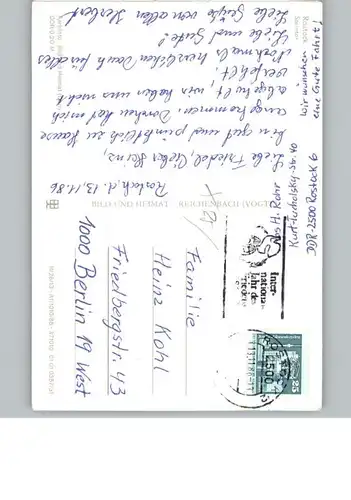 Rostock, d. 13.11.86
Liebe Friedel, lieber Heinz,
bin gut und pünktlich zu Hause
angekommen. Dorchen hat mich
abgeholt, wir haben uns nicht
verfehlt.
Nochmals herzlichen Dank für alles
Liebe und Gute!
Liebe Grüße von allen Herbert
Wir wünschen
eine Gute Fahrt!
Abs. H. Rohr
Kurt-Tucholsky-Str. 40
DDR-2500 Rostock 6
Inter-
nationa-
Jahr des
Friedens
2500
25
Familie
Heinz Kohl
Friedbergstr. 43
1000 Berlin 19 West